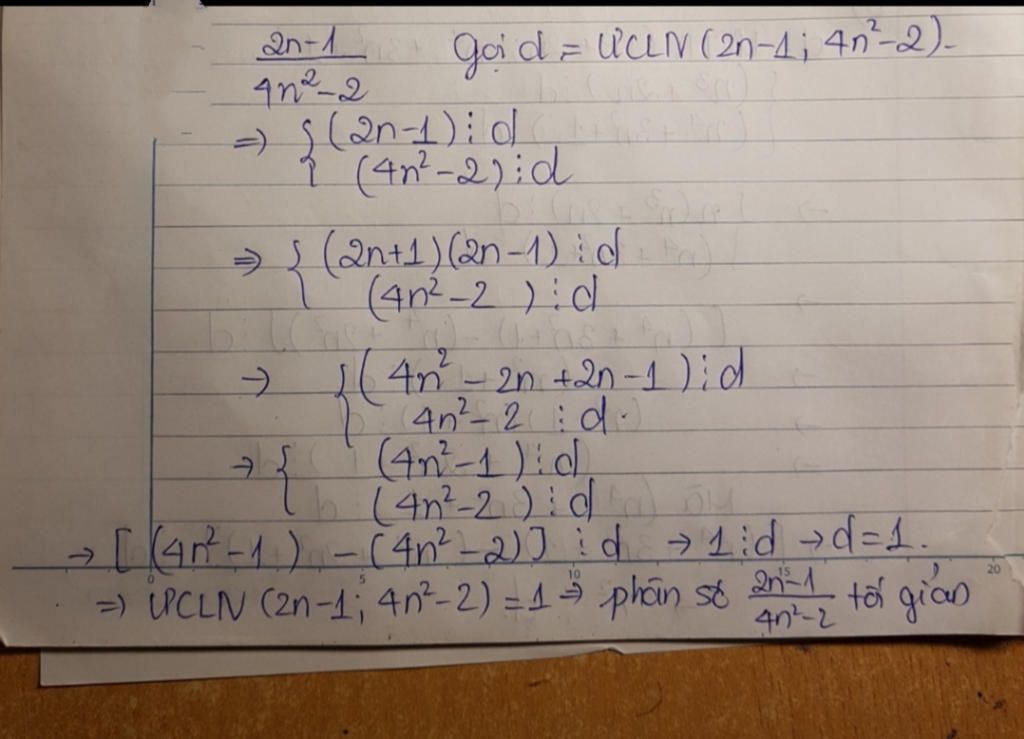 2n-1 / 4n²-2 Gọi d = ƯCLN (2n-1; 4n²-2).
⇒ { (2n-1) ⋮ d
(4n²-2) ⋮ d
⇒ { (2n+1)(2n-1) ⋮ d
(4n²-2 ) ⋮ d
→ { ( 4n² - 2n +2n -1 ) ⋮ d
4n²-2 ⋮ d.
→ { (4n²-1 ) ⋮ d
(4n²-2) ⋮ d
→ [ (4n²-1 ) - (4n²-2)] ⋮ d → 1 ⋮ d → d=1.
0 5 10 15 20
⇒ ƯCLN (2n-1; 4n²-2) = 1 ⇒ phân số 2n-1 / 4n²-2 tối giản